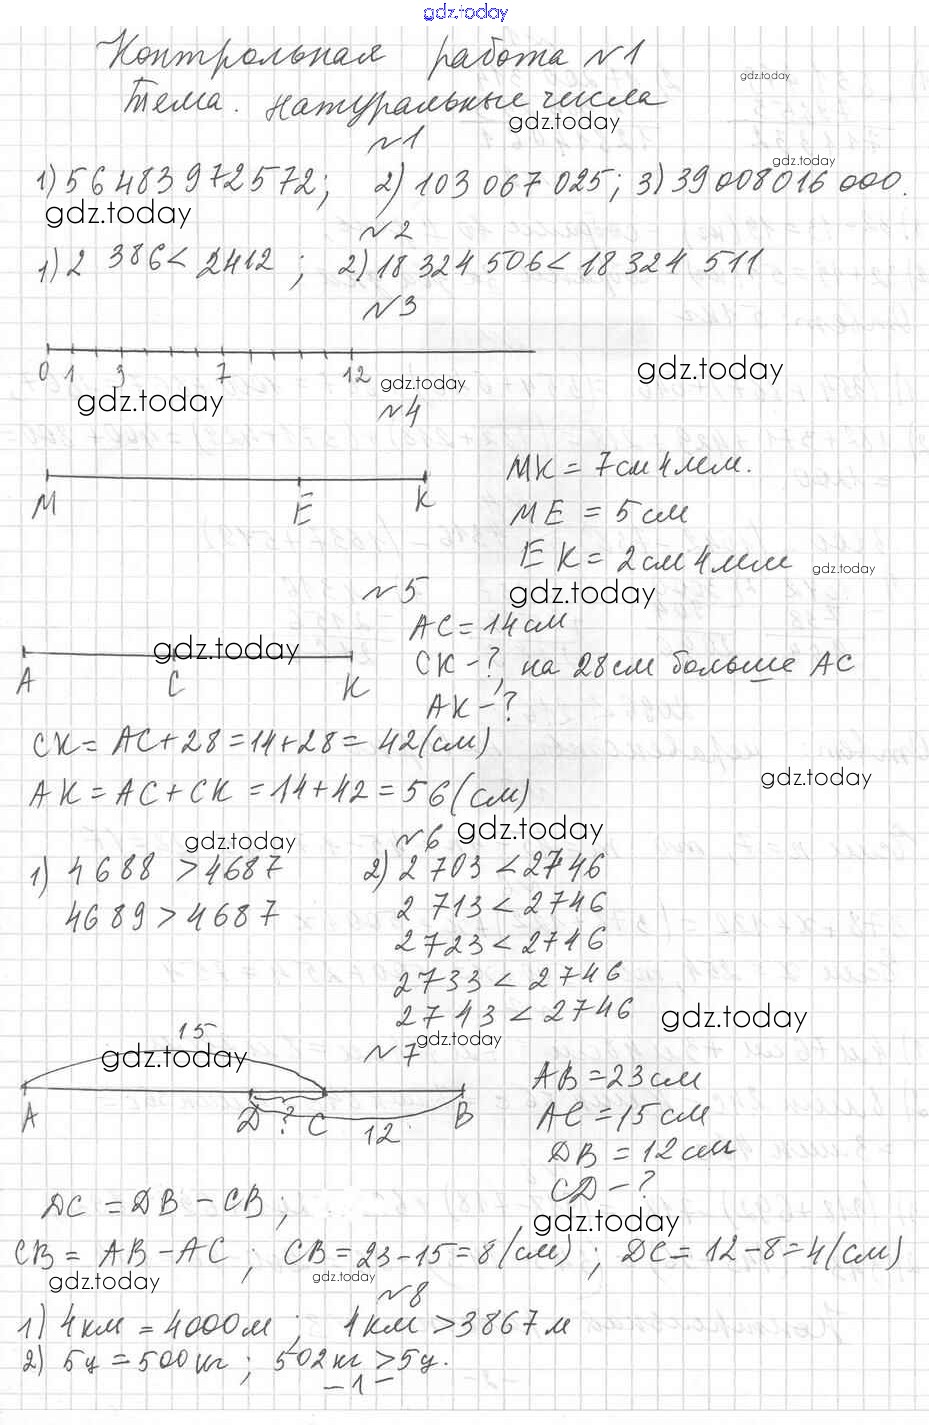 gdz.today
Контрольная работа №1
gdz.today
Тема. Натуральные числа
gdz.today
№1
gdz.today
1) 56 483 972 572; 2) 103 067 025; 3) 39 008 016 000.
gdz.today
№2
1) 2 386 < 2412 ; 2) 18 324 506 < 18 324 511
№3
0 1 3 7 12
gdz.today gdz.today gdz.today
№4
M E K
MK = 7см 4мм.
ME = 5см
EK = 2см 4мм
gdz.today
gdz.today
№5
AC = 14см
gdz.today
A C K
CK - ?, на 28см больше AC
AK - ?
CK = AC + 28 = 14 + 28 = 42 (см)
gdz.today
AK = AC + CK = 14 + 42 = 56 (см)
gdz.today gdz.today
№6
1) 4688 > 4687 2) 2 703 < 2746
4689 > 4687 2 713 < 2746
2723 < 2746
2733 < 2746
2743 < 2746
gdz.today
15
gdz.today gdz.today
№7
A D ? C 12 B
AB = 23см
AC = 15см
DB = 12см
CD - ?
DC = DB - CB ;
gdz.today
CB = AB - AC ; CB = 23 - 15 = 8 (см) ; DC = 12 - 8 = 4 (см)
gdz.today gdz.today
№8
1) 4км = 4000м ; 4км > 3867м
2) 5ц = 500кг ; 502кг > 5ц.
- 1 -